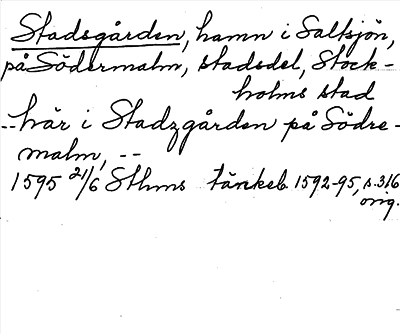 Stadsgården, hamn i Saltsjön,
på Södermalm, stadsdel, Stock-
holms stad
-- här i Stadzgården på Södre-
malm, --
1595 21/6 Sthms tänkeb. 1592-95, s. 316
orig.